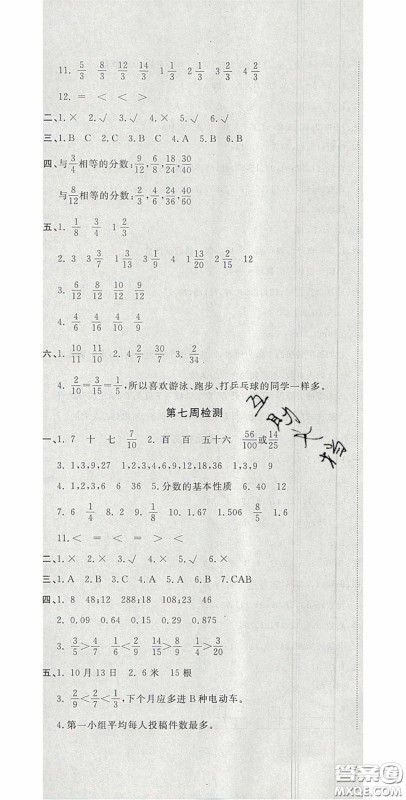 11. 5/3 8/3 12/3 14/3 1 1/3 2 2/3 4 4 2/3
12. = < < >
二、1. × 2. √ 3. × 4. √ 5. √ 6. √
三、1. B C 2. C 3. B 4. A 5. B 6. B
四、与3/4相等的分数：9/12，6/8，18/24，30/40
与8/12相等的分数：2/3，4/6，20/30，24/36
五、1. 1/8 3/4 1 2/3
2. 3 3 3/7 4 1 13/20 2 2/15 12
3. 6/12 8/12 10/12 9/12
4. 6 4 29/30 7
六、1. 10/11 10/11 2. 6 3. 2/3
4. 2/10=3/15=1/5，所以喜欢游泳、跑步、打乒乓球的同学一样多。
第七周检测
一、1. 7 十 七 7/10 2. 百 百 五十六 56/100或14/25
3. 1，3，9，27 1，2，3，4，6，9，12，18，36 1，3，9 9
4. 1，2，3，6 6 5. 分数的基本性质 6. 40 40
7. 6 1/4 8. 2 1/8 9. 150 1.506 10. 5/8 5
11. < = < < < >
二、1. × 2. × 3. √ 4. × 5. √
三、1. A 2. C 3. D 4. A 5. C 6. B 7. CAB
四、1. 8 48；12 288；18 108；36
2. 0.09 0.64 0.15 0.29 0.875
3. 3/5>3/7 1/3>1/4 4/7>4/9 7/8>6/7
五、1. 10月13日 2. 6米 15根
3. 2/9<2/7<1/2，下个月应多进B种电动车。
4. 第一小组平均每人投稿件数最多。
答案圈
MXQE.COM